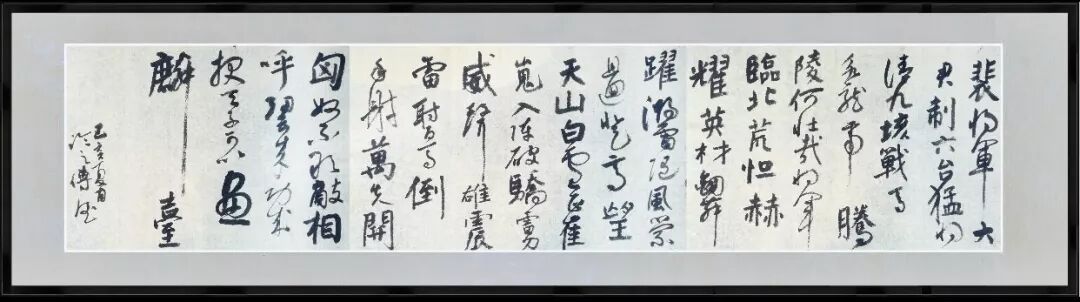 裴将軍大
君制六合猛将
清九垓戰馬
若龍虎騰
陵何壮哉将軍
臨北荒恒赫
耀英材劒舞
躍游電随風縈
且迴登高望
天山白雲正崔
嵬入陣破驕虜
威聲雄震
雷一射百馬倒
再射萬夫開
匈奴不敢敵相
呼歸去来功成
報天子可以畫
麟臺